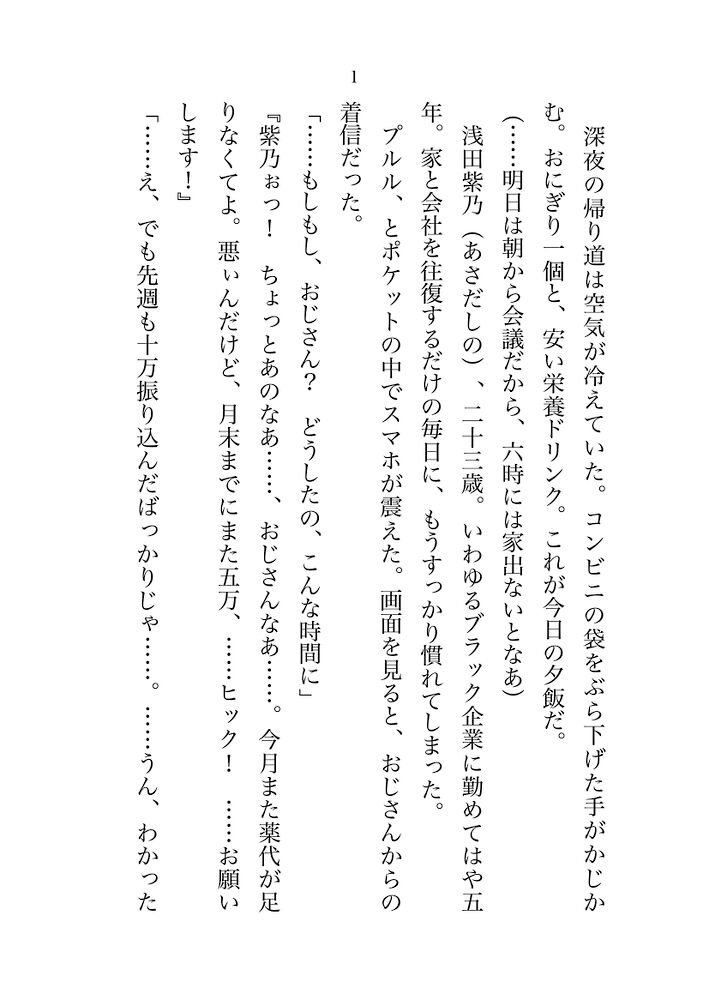 1
　深夜の帰り道は空気が冷えていた。コンビニの袋をぶら下げた手がかじか
む。おにぎり一個と、安い栄養ドリンク。これが今日の夕飯だ。
（……明日は朝から会議だから、六時には家出ないとなあ）
　浅田紫乃（あさだしの）、二十三歳。いわゆるブラック企業に勤めてはや五
年。家と会社を往復するだけの毎日に、もうすっかり慣れてしまった。
　プルル、とポケットの中でスマホが震えた。画面を見ると、おじさんからの
着信だった。
「……もしもし、おじさん？　どうしたの、こんな時間に」
『紫乃ぉっ！　ちょっとあのなあ……、おじさんなあ……。今月また薬代が足
りなくてよ。悪ぃんだけど、月末までにまた五万、……ヒック！　……お願い
します！』
「……え、でも先週も十万振り込んだばっかりじゃ……。……うん、わかった